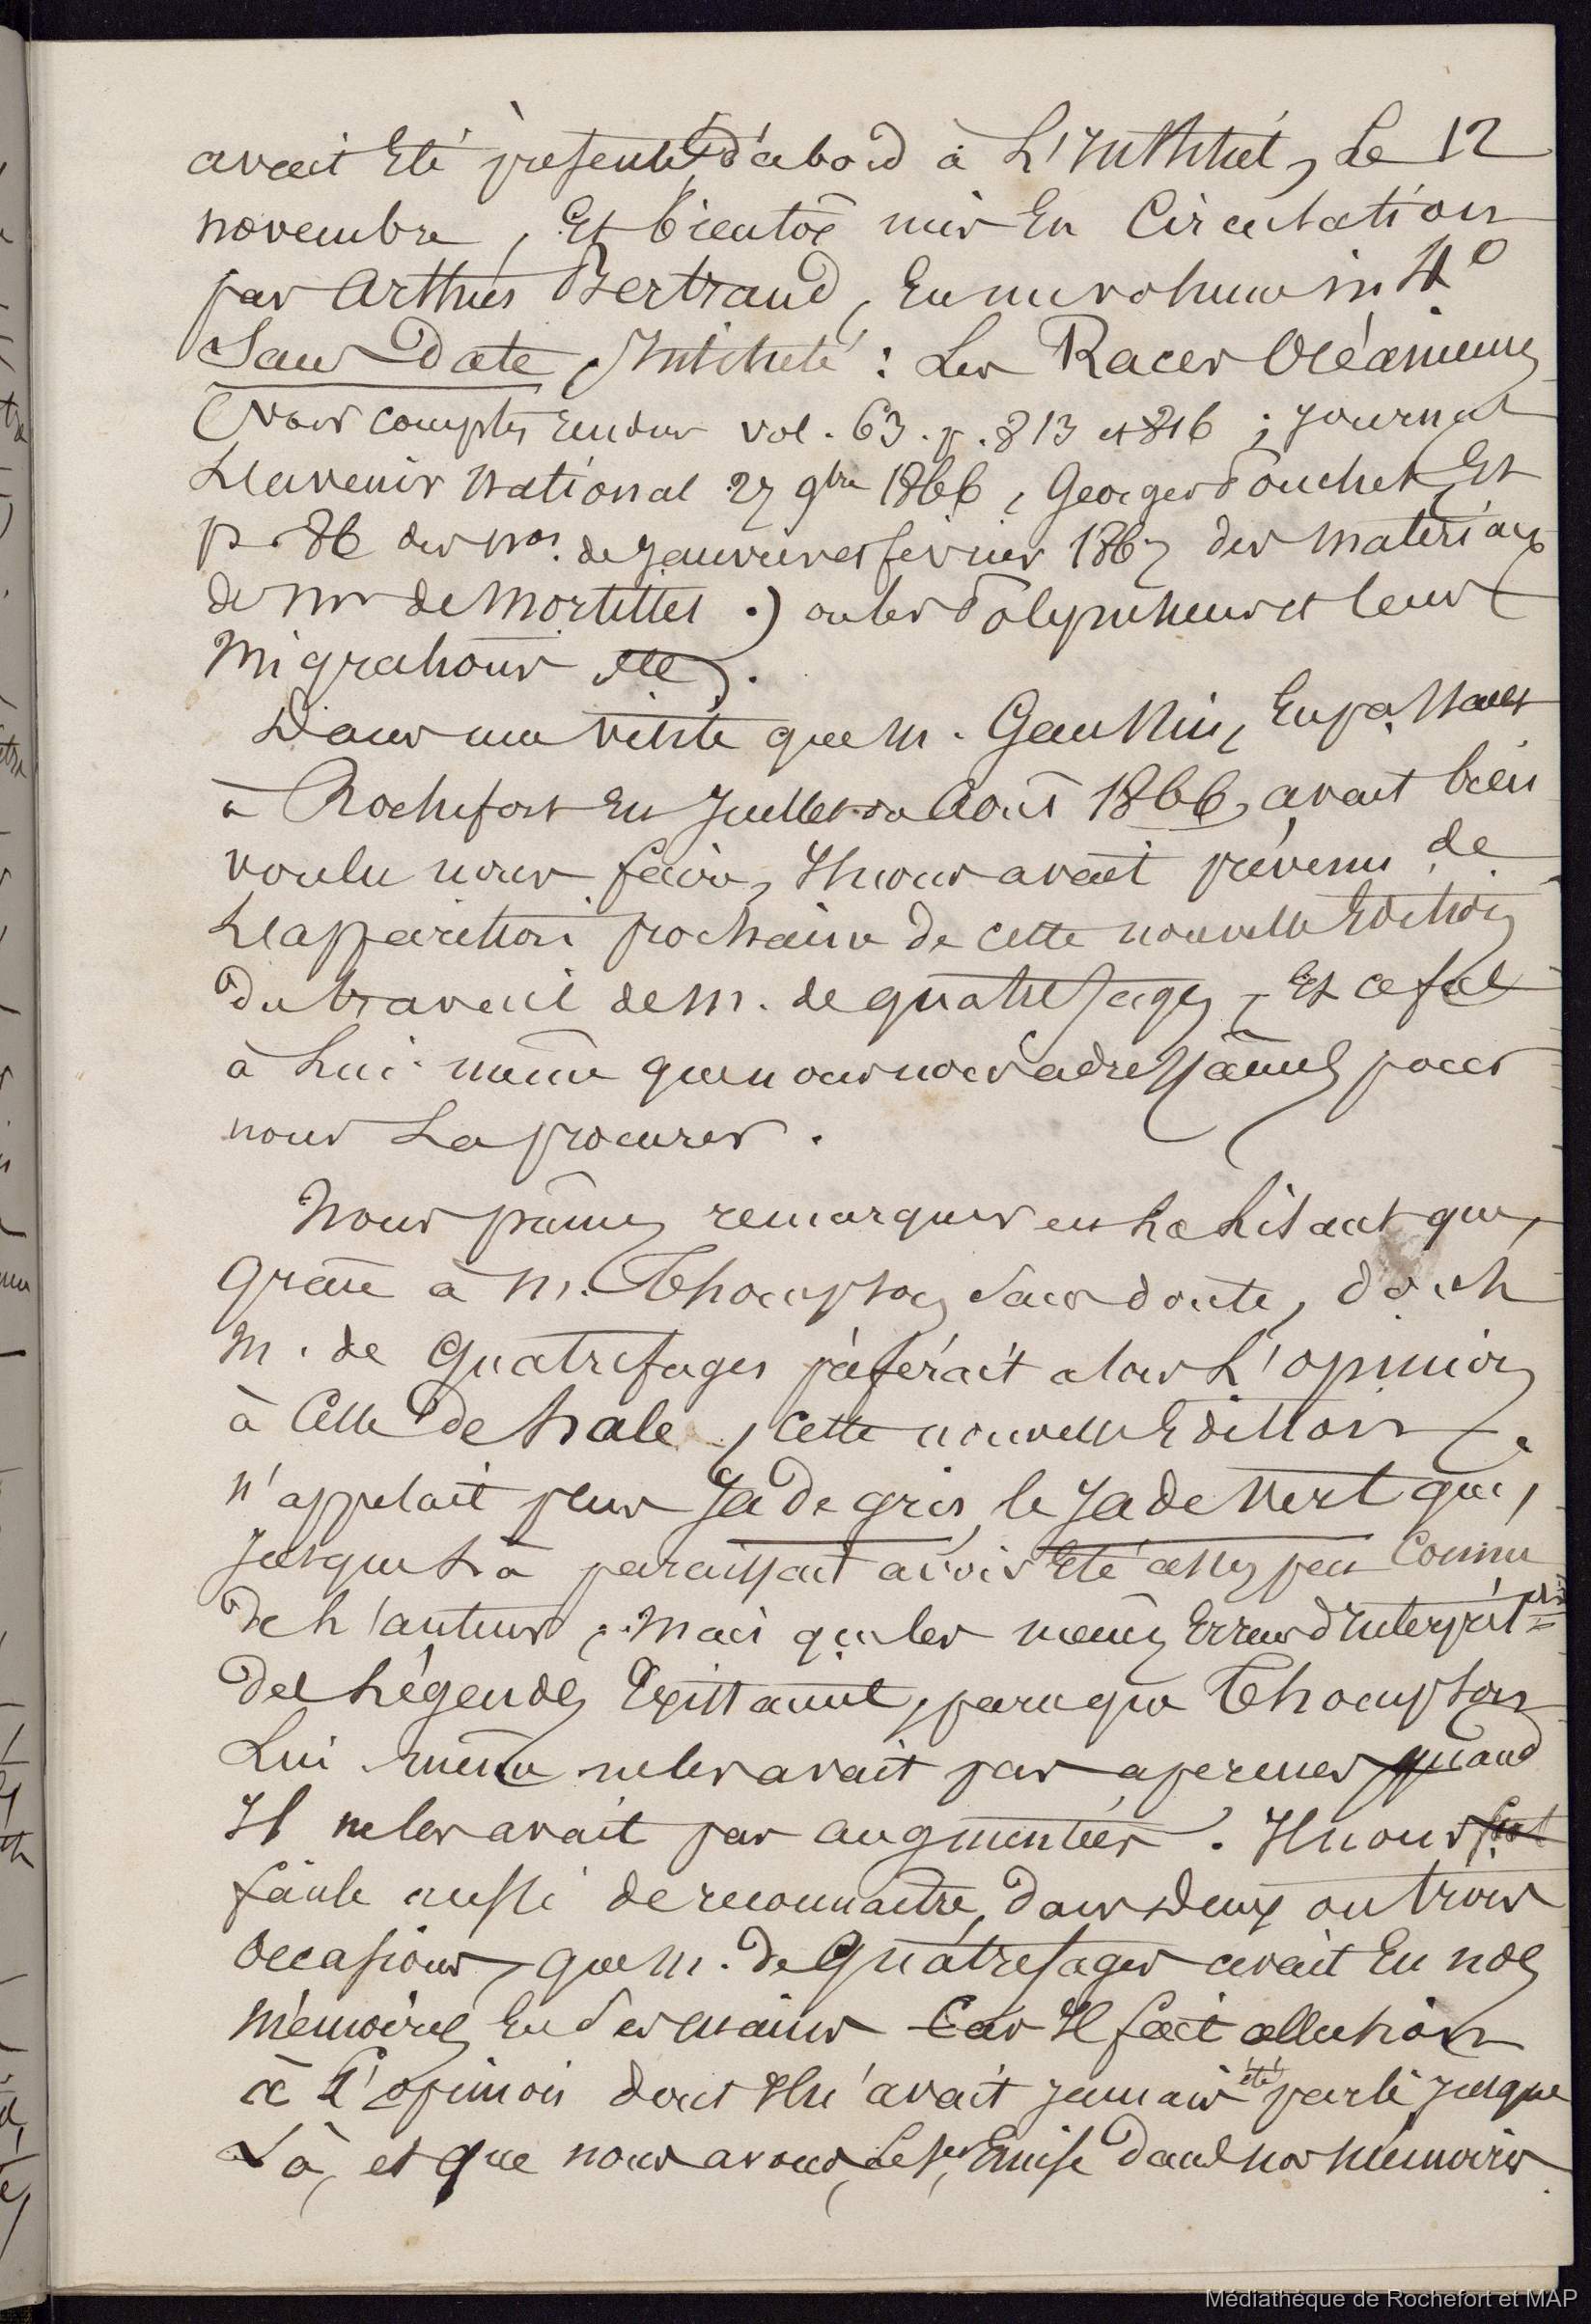 avait Eté présenté d'abord à L'Institut, Le 12
novembre, Et bientôt mis En Circulation
par Arthus Bertrand, En un volume in 4°
Sans Date, Intitulé : Les Races Océaniennes
(Voir comptes rendus vol. 63. p. 813 et 816 ; journal
L'avenir national 27 9bre 1866, Georges Pouchet, Et
p. 86 des nos. de janvier et février 1867 des matériaux
de Mr de Mortillet .) ou les Polynésiens et leurs
Migrations etc.
Dans une visite que M. Gaussin, En passant
à Rochefort En Juillet ou Août 1866, avait bien
voulu nous faire, Il nous avait prévenu de
L'apparition prochaine de cette nouvelle Edition
du travail de M. de quatrefages, Et ce fut
à Lui-même que nous nous adressâmes pour
nous La procurer.
Nous pûmes remarquer en La Lisant que,
Grâce à M. Thompson sans doute, dont
M. de Quatrefages préférait alors L'opinion
à Celle de hale, cette nouvelle Edition
n'appelait plus Jade gris, le Jade vert qui,
jusque Là paraissait avoir Eté assez peu Connu
de L'auteur ; Mais que les mêmes Erreurs d'Interprét
des Légendes Existaient, parceque Thompson
Lui même ne les avait pas aperçues quand
Il ne les avait pas augmentées. Il nous fut
facile aussi de reconnaître, dans deux ou trois
occasions, que M. de Quatrefages avait Eu nos
Mémoires En Ses mains Car Il fait allusion
à L'opinion dont Il n'avait jamais été parlé jusque
Là, et que nous avons, Le 1er, Emise dans nos mémoires
Médiathèque de Rochefort et MAP